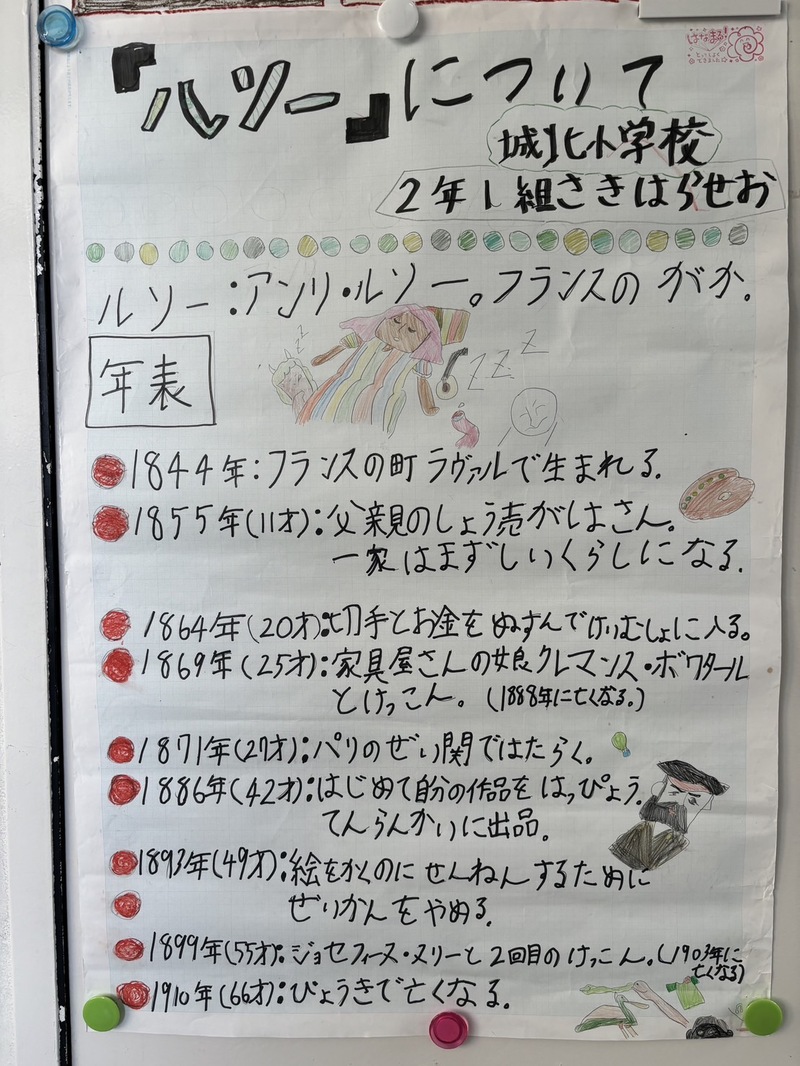 『ルソー』について
はなまる!
城北小学校
2年1組さきはらせお
ルソー:アンリ・ルソー。フランスの がか.
年表
zzz
ZZZ
1844年:フランスの町 ラヴァルで生まれる.
1855年(11才):父親のしょう売がはさん。
一家はまずしいくらしになる.
1864年(20才):切手とお金を ぬすんでけいむしょに入る。
1869年(25才):家具屋さんの娘クレマンス・ボワタール
とけっこん。(1888年に亡くなる.)
1871年(27才):パリのぜい関ではたらく.
1886年(42才):はじめて自分の作品を はっぴょう.
てんらんかいに出品.
1893年(49才):絵をかくのに せんねん するために
ぜいかんをやめる.
1899年(55才):ジョセフィーヌ・ヌリーと 2回目の けっこん.(1903年に
亡くなる)
1910年(66才):びょうきで亡くなる.